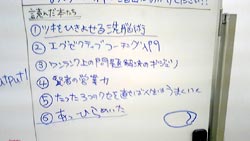 読んだ本たち
①ツキをひきよせる洗脳術
②エグゼクティブコーチング入門
③ワンランク上の問題解決の
④賢者の営業力
⑤たった3つのクセを直せば人生はうまくいく
⑥あっ ひらめいた
utput!